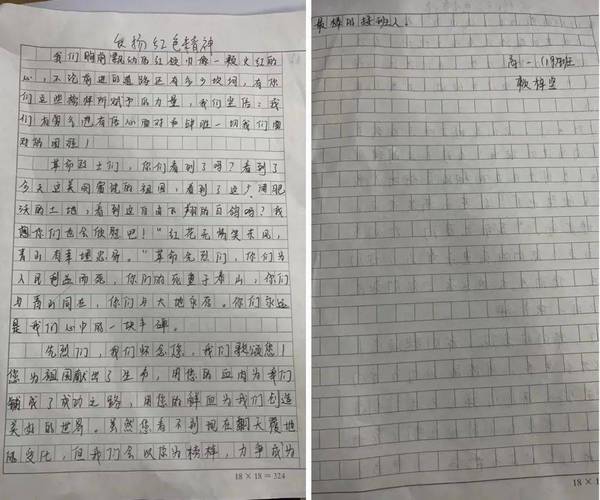 弘扬红色精神
我们胸前飘动的红领巾像一颗火红的
心，不论前进的道路还有多少坎坷，有你
们这些榜样所赋予的力量，我们坚信：我
们有勇气也有信心面对和战胜一切我们面
对的困难！
革命烈士们，你们看到了吗？看到了
今天这美丽富饶的祖国，看到了这片肥
沃的土地，看到这自由飞翔的白鸽吗？我
想你们也会欣慰吧！“红花无情笑东风，
青山有幸埋忠骨。”革命先烈们，你们为
人民利益而死，你们的死重于泰山，你们
与青山同在，你们与大地永存。你们永远
是我们心中的一块丰碑。
先烈们，我们怀念您，我们歌颂您！
您为祖国献出了生命，用您的血肉为我们
铺成了成功之路，用您的鲜血为我们创造
美好的世界。虽然您看不到现在翻天覆地
的变化，但我们会以您为榜样，力争成为
18×18=324
最棒的接班人。
高一（19）班
18×1